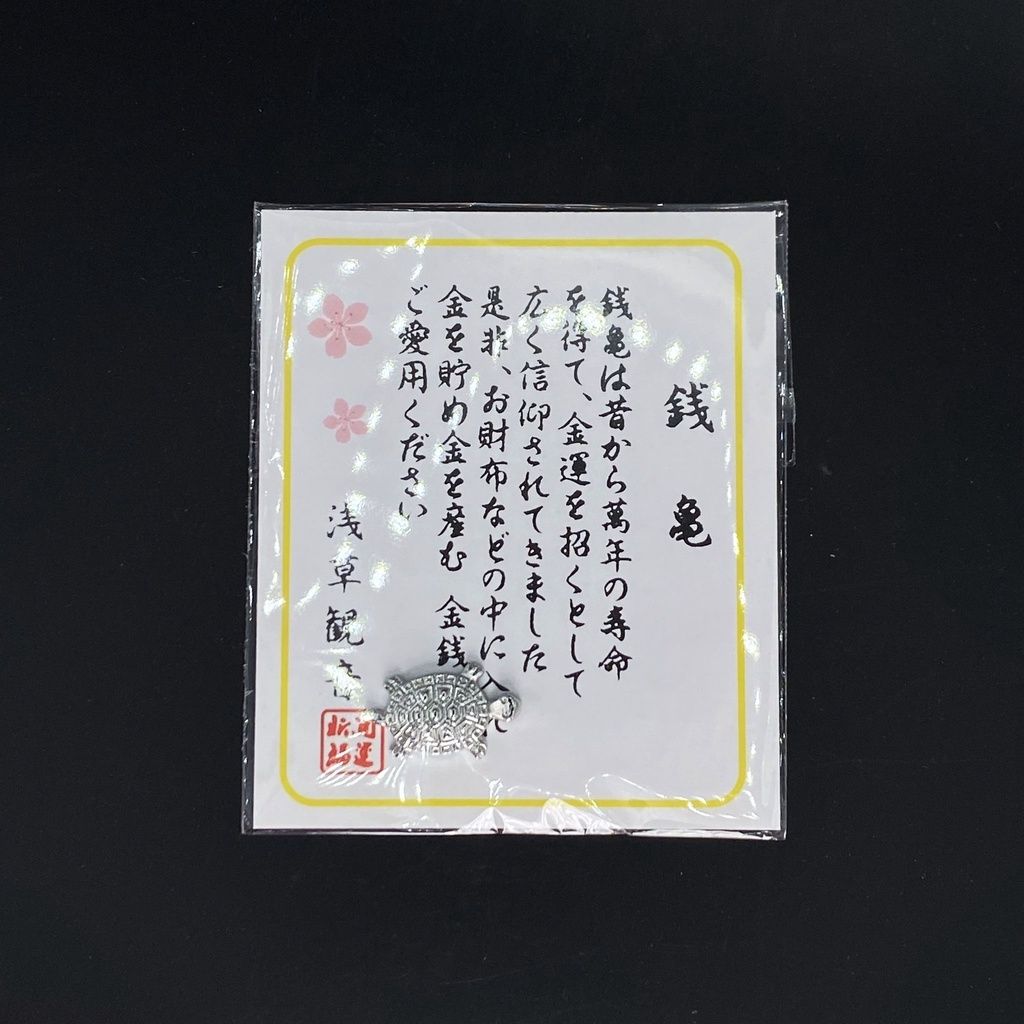 銭亀
銭亀は昔から萬年の寿命
を得て、金運を招くとして
広く信仰されてきました
是非、お財布などの中に入れ
金を貯め金を産む 金銭
ご愛用ください
浅草観音
開運